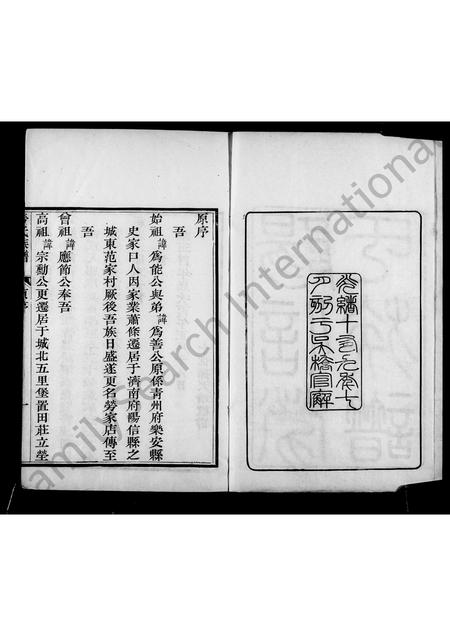 光緒十有九年七
月刻于吳橋官廨
原序
吾
始祖諱爲能公與弟諱爲善公原係青州府樂安縣
史家口人因家業蕭條遷居于濟南府陽信縣之
城東范家村厥後吾族日盛遂更名勞家店傳至
吾
曾祖諱應節公奉吾
高祖諱宗勳公更遷居于城北五里堡置田莊立塋
氏族譜
原序
一
FamilySearch International